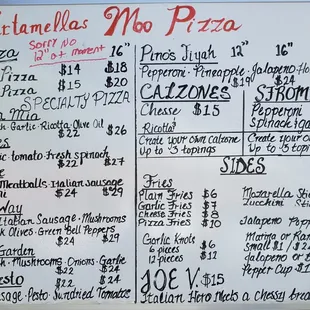 rtamellas Moo Pizza
Sorry No
12" at moment
zza 16"
Pizza $14 $18
Pizza $15 $20
SPECIALTY PIZZA
a Mia
Garlic Ricotta Olive Oil
$22 $26
es
lic tomato Fresh spinach
$22 $27
e
Meatballs Italian Sausage
$24 $29
Way
Italian Sausage Mushrooms
k Olives Green Bell Peppers
$24 $29
Garden
sh Mushrooms Onions Garlic
$24
esto
sage Pesto Sundried Tomatoes
Pino's Tiyah 12" 16"
Pepperoni Pineapple Jalapeno Ho
$19 $24
CALZONES
Chesse $15
Ricotta
Create your own calzone
Up to 3 topings
STROM
Pepperoni
Spinach
Create your o
Up to 3 topi
SIDES
Fries
Plain Fries $6
Garlic Fries $7
Cheese Fries $8
Pizza Fries $10
Garlic Knots
6 pieces $6
12 pieces $12
Mozarella Sti
Zucchini Sti
Jalapeno Pop
Marina or Ran
Small $1 / $2
Jalapeno or B
Pepper Cup $1
JOE V. $15
Italian Hero Meets a chessy brea